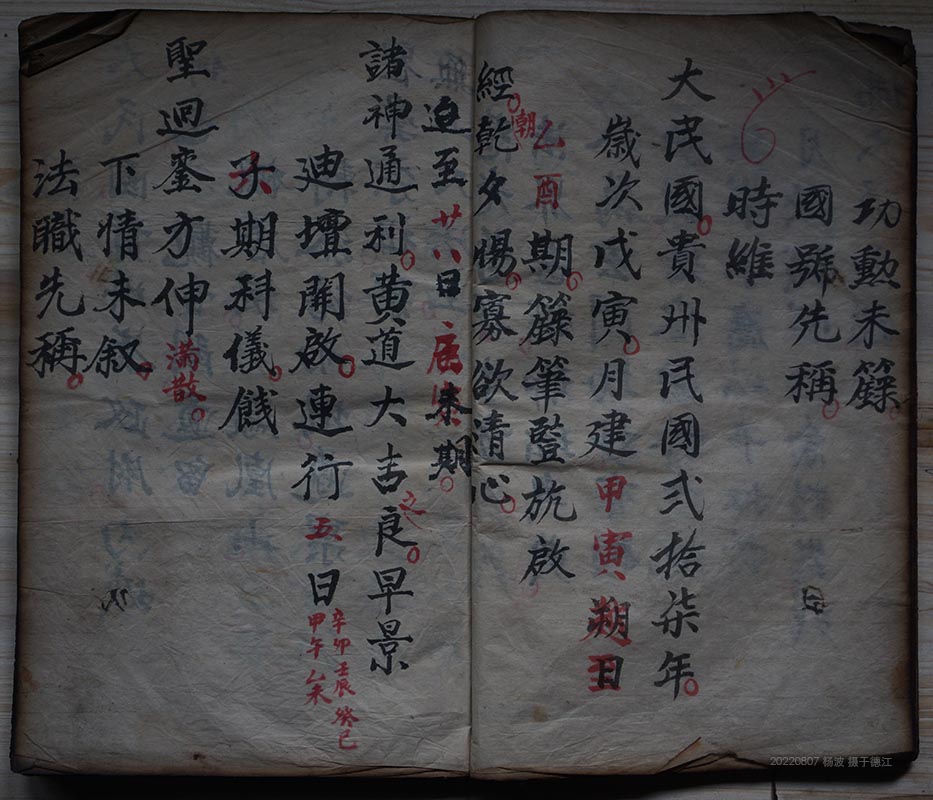 功勳未籙
國號先稱
時維
大民國貴州民國弍拾柒年
歲次戊寅月建甲寅朔日
乙酉朝期籙筆暨旂啟
經乾夕惕寡欲清心
迫至廿八日 來期
諸神通利黄道大吉之良早景
迪壇開啟連行五日
辛卯壬辰癸巳
甲午乙未
期科儀餞
聖迴鑾方伸满散
下情未叙
法職先稱
20220807 杨波 摄于德江